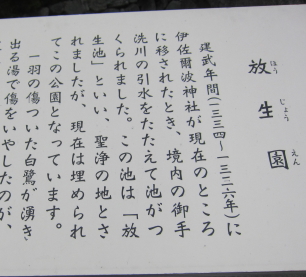 放生園
ほうじょうえん
建武年間(一三三四～一三三六年)に
伊佐爾波神社が現在のところ
に移されたとき、境内の御手
洗川の引水をたたえて池がつ
くられました。この池は「放
生池」といい、聖浄の地とさ
れましたが、現在は埋められ
てこの公園となっています。
一羽の傷ついた白鷺が湧き
出る湯で傷をいやしたのが、